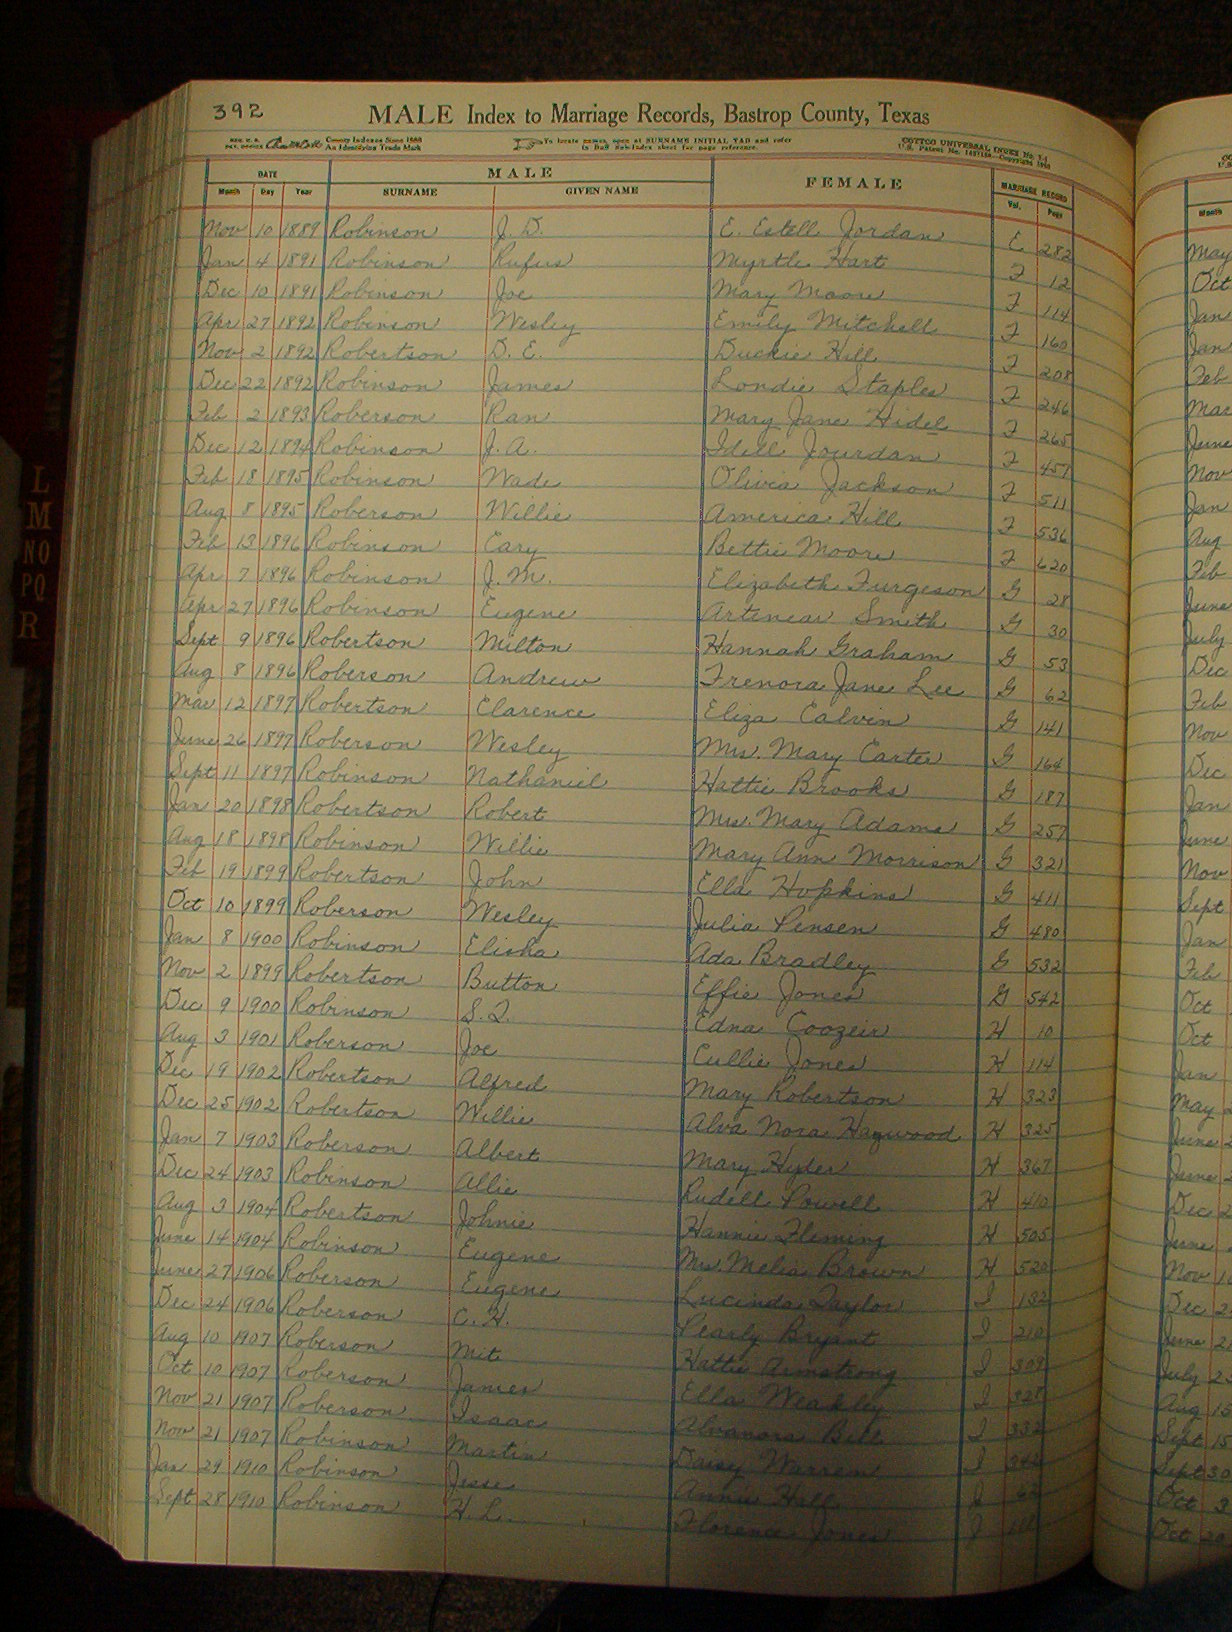 392
MALE Index to Marriage Records, Bastrop County, Texas
County Indexes Since 1888
An Identifying Trade Mark
To locate names, open at SURNAME INITIAL TAB and refer
to Buff Sub-Index sheet for page reference.
COTTCO UNIVERSAL INDEX No. V-1
DATE MALE FEMALE MARRIAGE RECORD
Month Day Year SURNAME GIVEN NAME Vol. Page
Nov 10 1889 Robinson J. D. E. Estell Jordan E 282
Jan 4 1891 Robinson Rufus Myrtle Hart F 12
Dec 10 1891 Robinson Joe Mary Moore F 114
Apr 27 1892 Robinson Wesley Emily Mitchell F 160
Nov 2 1892 Robertson D. E. Duckie Hill F 208
Dec 22 1892 Robinson James Londie Staples F 246
Feb 2 1893 Roberson Ran Mary Jane Hidel F 265
Dec 12 1894 Robinson J. A. Idell Jourdan F 457
Feb 18 1895 Robinson Wade Olivia Jackson F 511
Aug 8 1895 Roberson Willie America Hill F 536
Feb 13 1896 Robinson Cary Bettie Moore F 620
Apr 7 1896 Robinson J. M. Elizabeth Furgeson G 28
Apr 27 1896 Robinson Eugene Artemear Smith G 30
Sept 9 1896 Robertson Milton Hannah Graham G 53
Aug 8 1896 Roberson Andrew Frenora Jane Lee G 62
Mar 12 1897 Robertson Clarence Eliza Calvin G 141
June 26 1897 Roberson Wesley Mrs. Mary Carter G 164
Sept 11 1897 Robinson Nathaniel Hattie Brooks G 187
Jan 20 1898 Robertson Robert Mrs. Mary Adams G 257
Aug 18 1898 Robinson Willie Mary Ann Morrison G 321
Feb 19 1899 Robertson John Ella Hopkins G 411
Oct 10 1899 Roberson Wesley Julia Pensen G 480
Jan 8 1900 Robinson Elisha Ada Bradley G 532
Nov 2 1899 Robertson Button Effie Jones G 542
Dec 9 1900 Robinson S. Q. Edna Coozeir H 10
Aug 3 1901 Roberson Joe Cullie Jones H 114
Dec 19 1902 Robertson Alfred Mary Robertson H 323
Dec 25 1902 Robertson Willie Alva Nora Haywood H 325
Jan 7 1903 Roberson Albert Mary Hyder H 367
Dec 24 1903 Robinson Allie Rudell Powell H 410
Aug 3 1904 Robertson Johnie Hannie Fleming H 505
June 14 1904 Robinson Eugene Mrs Melia Brown H 520
June 27 1906 Roberson Eugene Lucinda Taylor I 132
Dec 24 1906 Roberson C. H. Pearly Bryant I 210
Aug 10 1907 Roberson Mit Hattie Armstrong I 309
Oct 10 1907 Roberson James Ella Weakley I 328
Nov 21 1907 Roberson Isaac Alvanora Bell I 332
Nov 21 1907 Robinson Martin Daisy Warren I 342
Jan 29 1910 Robinson Jesse Annie Hill J 62
Sept 28 1910 Robinson H. L. Florence Jones J
L
M
NO
PQ
R
Month
May
Oct
Jan
Jan
Feb
Mar
June
Nov
Jan
Aug
Feb
June
July
Dec
Feb
Nov
Dec
Jan
June
Nov
Sept
Jan
Feb
Oct
Oct
Jan
May
June
June
Dec
June
Nov
Dec
June
July
Aug 15
Sept 15
Sept 30
Oct 3
Oct 20